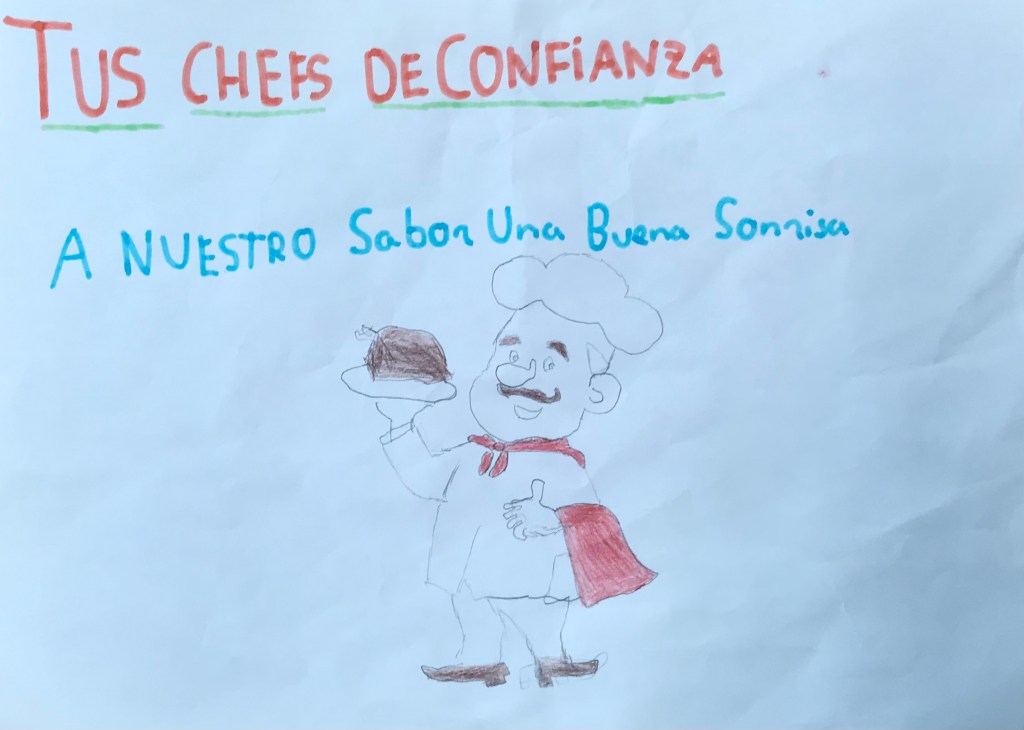 TUS CHEFS DE CONFiANZA
A NUESTRO Sabor Una Buena Sonrisa